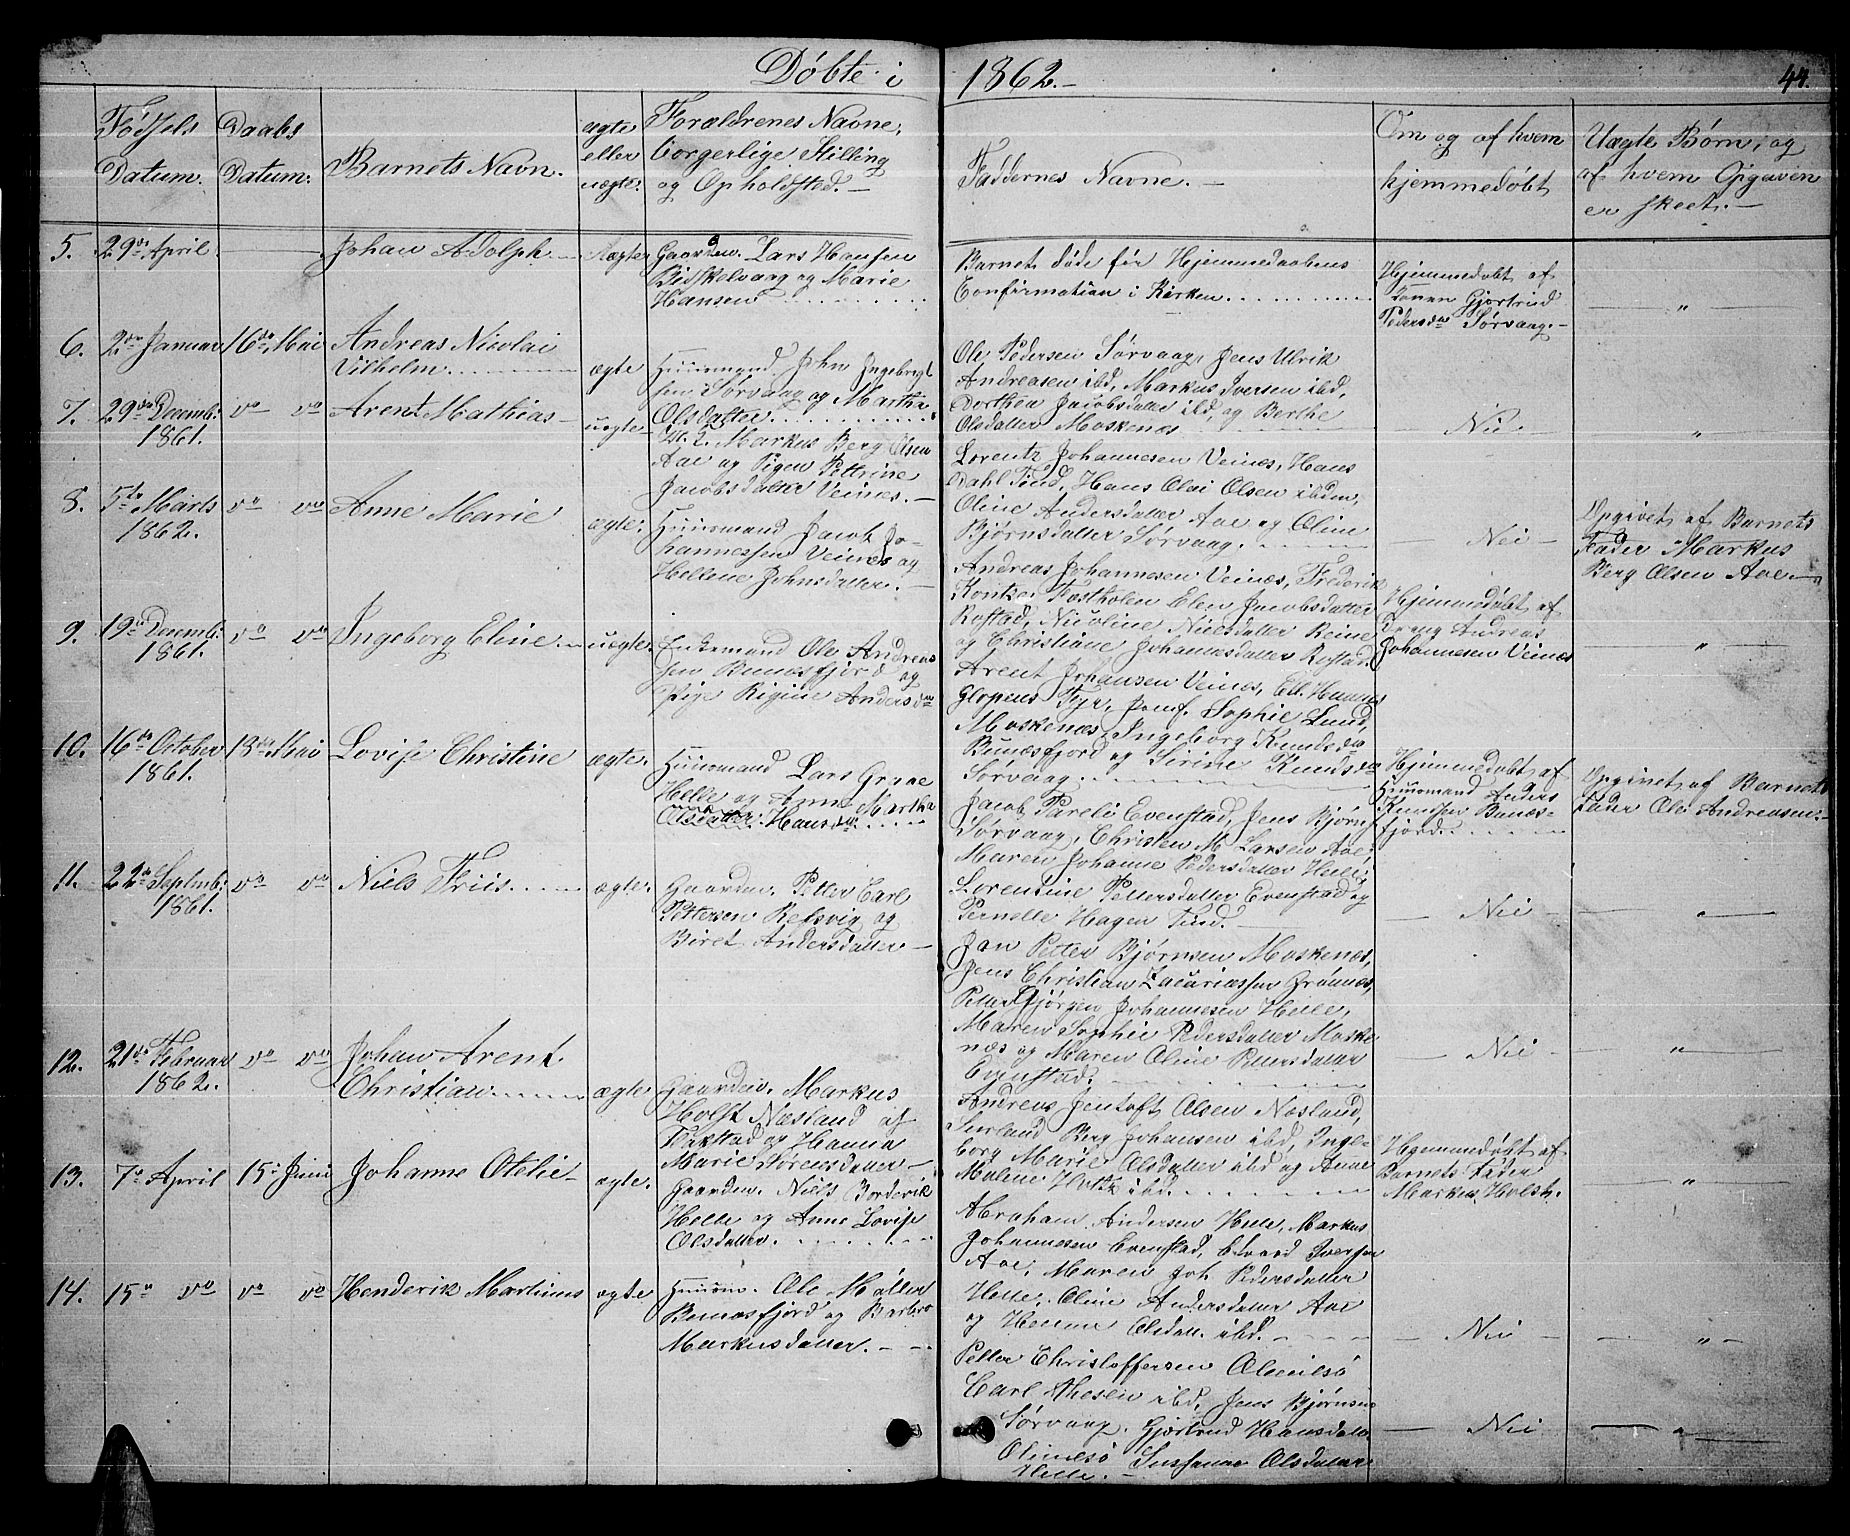 Døbte i 1862.-
44.
Fødsels Datum.
Daabs Datum.
Barnets Navn.
ægte eller uægte.
Forældrenes Navne, borgerlige Stilling og Opholdsted.-
Faddernes Navne.-
Om og af hvem hjemmedøbt
Uægte Børn, og af hvem Opgaven er skeet.-
5. 29de April
Johan Adolph
Ægte
Gaardm. Lars Hansen
og Marie
Hansen
Barnet døde før Hjemmedaabens
Confirmation i Kirken
Hjemmedøbt af
Gjertrud
Pedersdtr Sørvaag.-
"
6. 2den Januar 16de Mai
Andreas Nicolai
Vilhelm
ægte
Huusmand John Ingebrigt
sen Sørvaag og Martha
Olsdatter
Ole Pedersen Sørvaag, Jens Ulrik
Andreasen ibd, Markus Iversen ibd,
Dorthea Jacobsdatter ibd, og Berthe
Olsdatter Moskenæs
- Nei -
"
7. 29de Decemb:
1861.
do do
Arent Mathias
uægte
Markus Berg Olsen
Aae og Pigen Pettrine
Jacobsdatter Veinæs.-
Lorentz Johannesen Veinæs, Hans
Dahl Tind, Hans Olai Olsen ibden,
Oline Andersdatter Aae og Oline
Bjørnsdatter Sørvaag.
- Nei -
Opgivet af Barnets
Fader Markus
Berg Olsen Aae
8. 5te Marts
1862.
do do
Anne Marie
ægte.
Huusmand Jacob Jo-
hannessen Veinæs og
Hellene Johnsdatter.-
Andreas Johannesen Veinæs, Frederik
Elen Jacobsdatter
Rostad, Nicoline Nielsdatter Reine
og Christiane Johannesdatter Rostad.
Hjemmedøbt af
Andreas
Johannesen Veinæs
"
9. 19de Decemb:
1861.
do do
Ingeborg Eline
uægte.
Enkemand Ole Andreas
sen Bunæsfjord og
Pige Regine Andersdtr
Arent Johansen Veinæs,
Glopens Fyr, Jomf. Sophie Lund,
Moskenæs, Ingeborg Knudsdtr
Bunæsfjord og Sirine Knudsdtr
Sørvaag
Hjemmedøbt af
Huusmand Anders
Knudsen Bunæs-
fjord
Opgivet af Barnets
Fader Ole Andreasen.-
10. 16de October
1861.
18de Mai
Lovise Christine
ægte.
Huusmand Lars Grue
Helle og Anne Martha
Olsdatter. Hansdtr
Jacob Parelö Evenstad, Jens Bjørns
Sørvaag, Christen M Larsen Aae,
Maren Johanne Pedersdatter Helle,
Lorentine Pettersdatter Evenstad og
Pernelle Hagen Tind.
- Nei -
"
11. 22de Septmb:
1861.
do do
Niels Friis
ægte.
Gaardm. Petter Carl
Pettersen Rebsvig og
Beret Andersdatter
Jan Petter Bjørnsen Moskenæs,
Jens Christian Zacariassen
Petter Jørgen Johannesen Helle,
Maren Sophie Pedersdatter Moske
næs og Maren Oline Pettersdatter
Evenstad.
- Nei -
"
12. 21de Februar
1862.
do do
Johan Arent
Christian
ægte
Gaardm. Markus
Holst Næsland af
og Hanna
Marie Sørensdatter
Andreas Jentoft Olsen Næsland,
Berg Johansen ibd, Inge-
borg Marie Olsdatter ibd og Anne
Malene ibd.
Hjemmedøbt af
Barnets Fader
Markus Holst.
"
13. 7de April
15de Juni
Johanne Otelie
ægte.
Gaardm. Niels Borderik
Helle og Anne Lovise
Olsdatter.
Abraham Andersen Helle, Markus
Johannesen Evenstad, Edvard Iversen
Aae, Maren Joh Pedersdatter
Helle, Oline Andersdatter Aae
og Olsdatt. ibd.
- Nei -
"
14. 15de do
do do
Henderik Martinus
ægte
Huusm. Ole Møller
Bunæsfjord og Barbro
Markusdatter.
Petter Christoffersen Olenilsö
Carl Thesen ibd, Jens Bjørnsen
Sørvaag, Gjertrud Hansdatter
Olenilsö Susanne Olsdatter
Helle.-
- Nei -
"